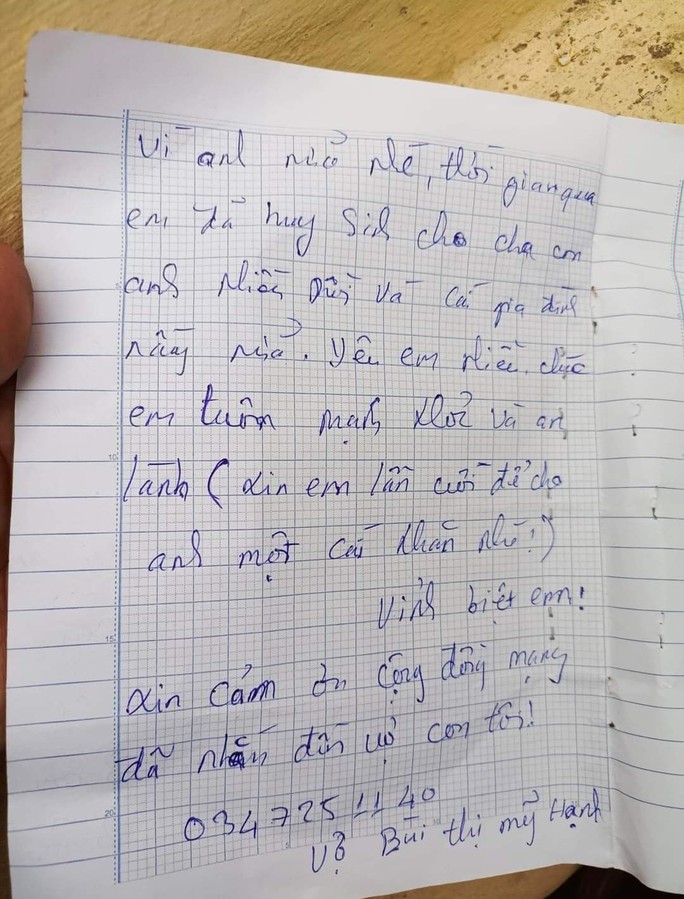 Vì anh nữa nhé, thời gian qua
em đã huy sinh cho cha con
anh nhiều rồi và cả gia đình
này nữa. Yêu em nhiều. chúc
em luôn mạnh khỏe và an
lành (xin em lần cuối để cho
anh một cái khăn nhé!)
Vĩnh biệt em!
xin cảm ơn cộng đồng mạng
đã nhắn đến vợ con tôi!
0347251140
Vợ Bùi thị mỹ Hạnh